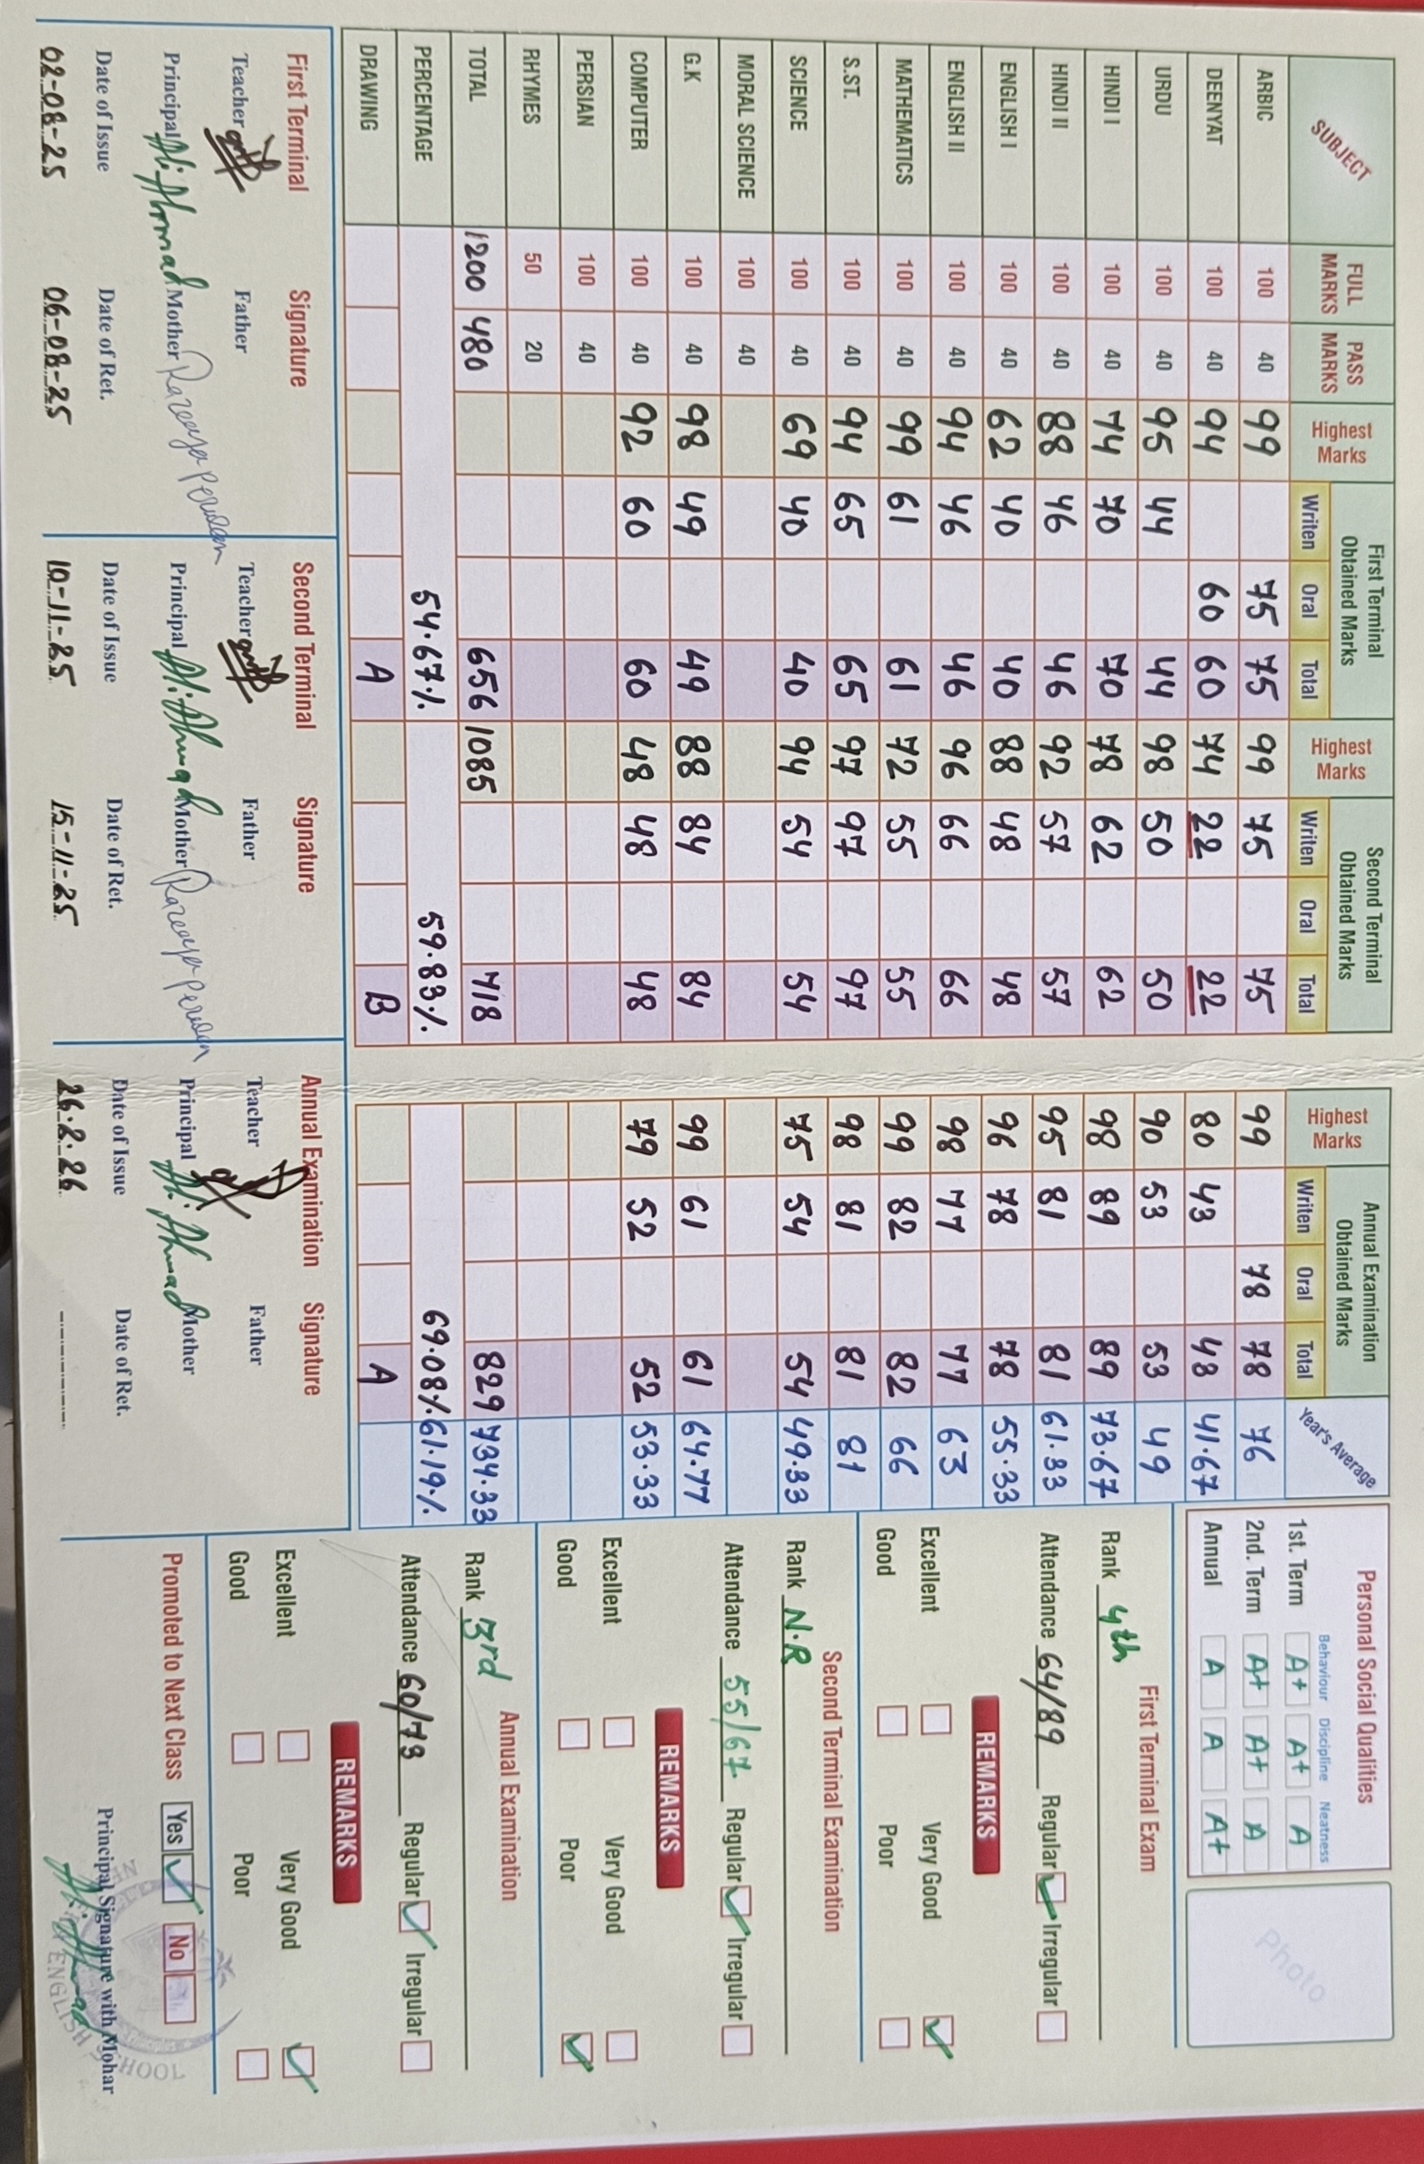 SUBJECT FULL MARKS PASS MARKS Highest Marks First Terminal Obtained Marks Writen Oral Total Highest Marks Second Terminal Obtained Marks Writen Oral Total Highest Marks Annual Examination Obtained Marks Writen Oral Total Year's Average
ARBIC 100 40 99 75 75 99 75 75 99 78 78 76
DEENYAT 100 40 94 60 60 74 22 22 80 43 43 41.67
URDU 100 40 95 44 44 98 50 50 90 53 53 49
HINDI I 100 40 74 70 70 78 62 62 98 89 89 73.67
HINDI II 100 40 88 46 46 92 57 57 95 81 81 61.33
ENGLISH I 100 40 62 40 40 88 48 48 96 78 78 55.33
ENGLISH II 100 40 94 46 46 96 66 66 98 77 77 63
MATHEMATICS 100 40 99 61 61 72 55 55 99 82 82 66
S.ST. 100 40 94 65 65 97 97 97 98 81 81 81
SCIENCE 100 40 69 40 40 94 54 54 75 54 54 49.33
MORAL SCIENCE 100 40
G.K 100 40 98 49 49 88 84 84 99 61 61 64.77
COMPUTER 100 40 92 60 60 48 48 48 79 52 52 53.33
PERSIAN 100 40
RHYMES 50 20
TOTAL 1200 480 656 1085 718 829 734.33
PERCENTAGE 54.67% 59.83% 69.08% 61.19%
DRAWING A B A
First Terminal Signature
Teacher Father
Principal Ali Ahmad Mother Razeeya Perveen
Date of Issue Date of Ret.
02-08-25 06-08-25
Second Terminal Signature
Teacher Father
Principal Ali Ahmad Mother Razeeya Perveen
Date of Issue Date of Ret.
10-11-25 15-11-25
Annual Examination Signature
Teacher Father
Principal Ali Ahmad Mother
Date of Issue Date of Ret.
26.2.26
Personal Social Qualities
Behaviour Discipline Neatness
1st. Term A+ A+ A
2nd. Term A+ A+ A
Annual A A A+
Photo
First Terminal Exam
Rank 4th
Attendance 64/89 Regular Irregular
REMARKS
Excellent Very Good
Good Poor
Second Terminal Examination
Rank N.R
Attendance 55/67 Regular Irregular
REMARKS
Excellent Very Good
Good Poor
Annual Examination
Rank 3rd
Attendance 60/73 Regular Irregular
REMARKS
Excellent Very Good
Good Poor
Promoted to Next Class Yes No
Principal Signature with Mohar
Ali Ahmad
ENGLISH SCHOOL